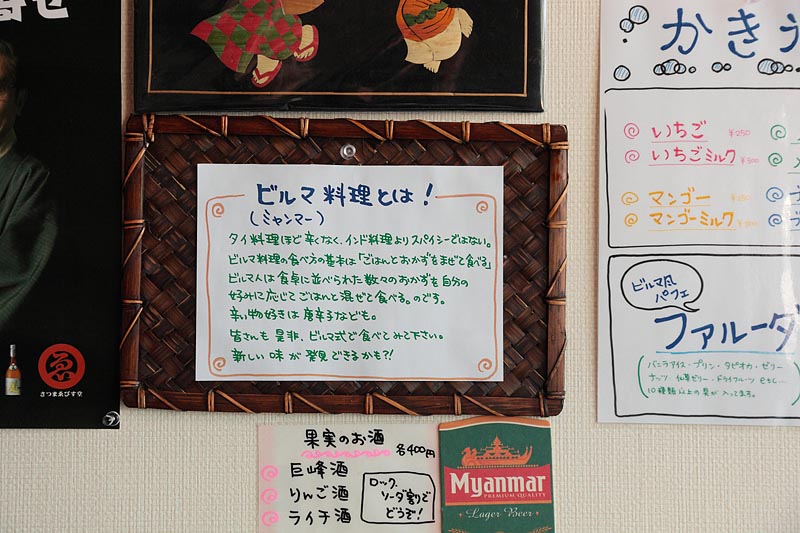 寄せ
さつまゑびす堂
ビルマ料理とは!
(ミャンマー)
タイ料理ほど辛くなく、インド料理よりスパイシーではない。
ビルマ料理の食べ方の基本は「ごはんとおかずをまぜて食べる」
ビルマ人は食卓に並べられた数々のおかずを自分の
好みに応じてごはんと混ぜて食べる。のです。
辛い物好きは唐辛子なども。
皆さんも是非、ビルマ式で食べてみて下さい。
新しい味が発見できるかも?!
果実のお酒
各400円
巨峰酒
りんご酒
ライチ酒
ロック、
ソーダ割りで
どうぞ!
Myanmar
PREMIUM QUALITY
Lager Beer
かき
いちご ¥250
いちごミルク ¥300
マンゴー
マンゴーミルク
ビルマ風
パフェ
ファルーダ
バニラアイス・プリン・タピオカ・ゼリー
ナッツ・仙草ゼリー・ドライフルーツ etc...
10種類以上の具が入ってます。